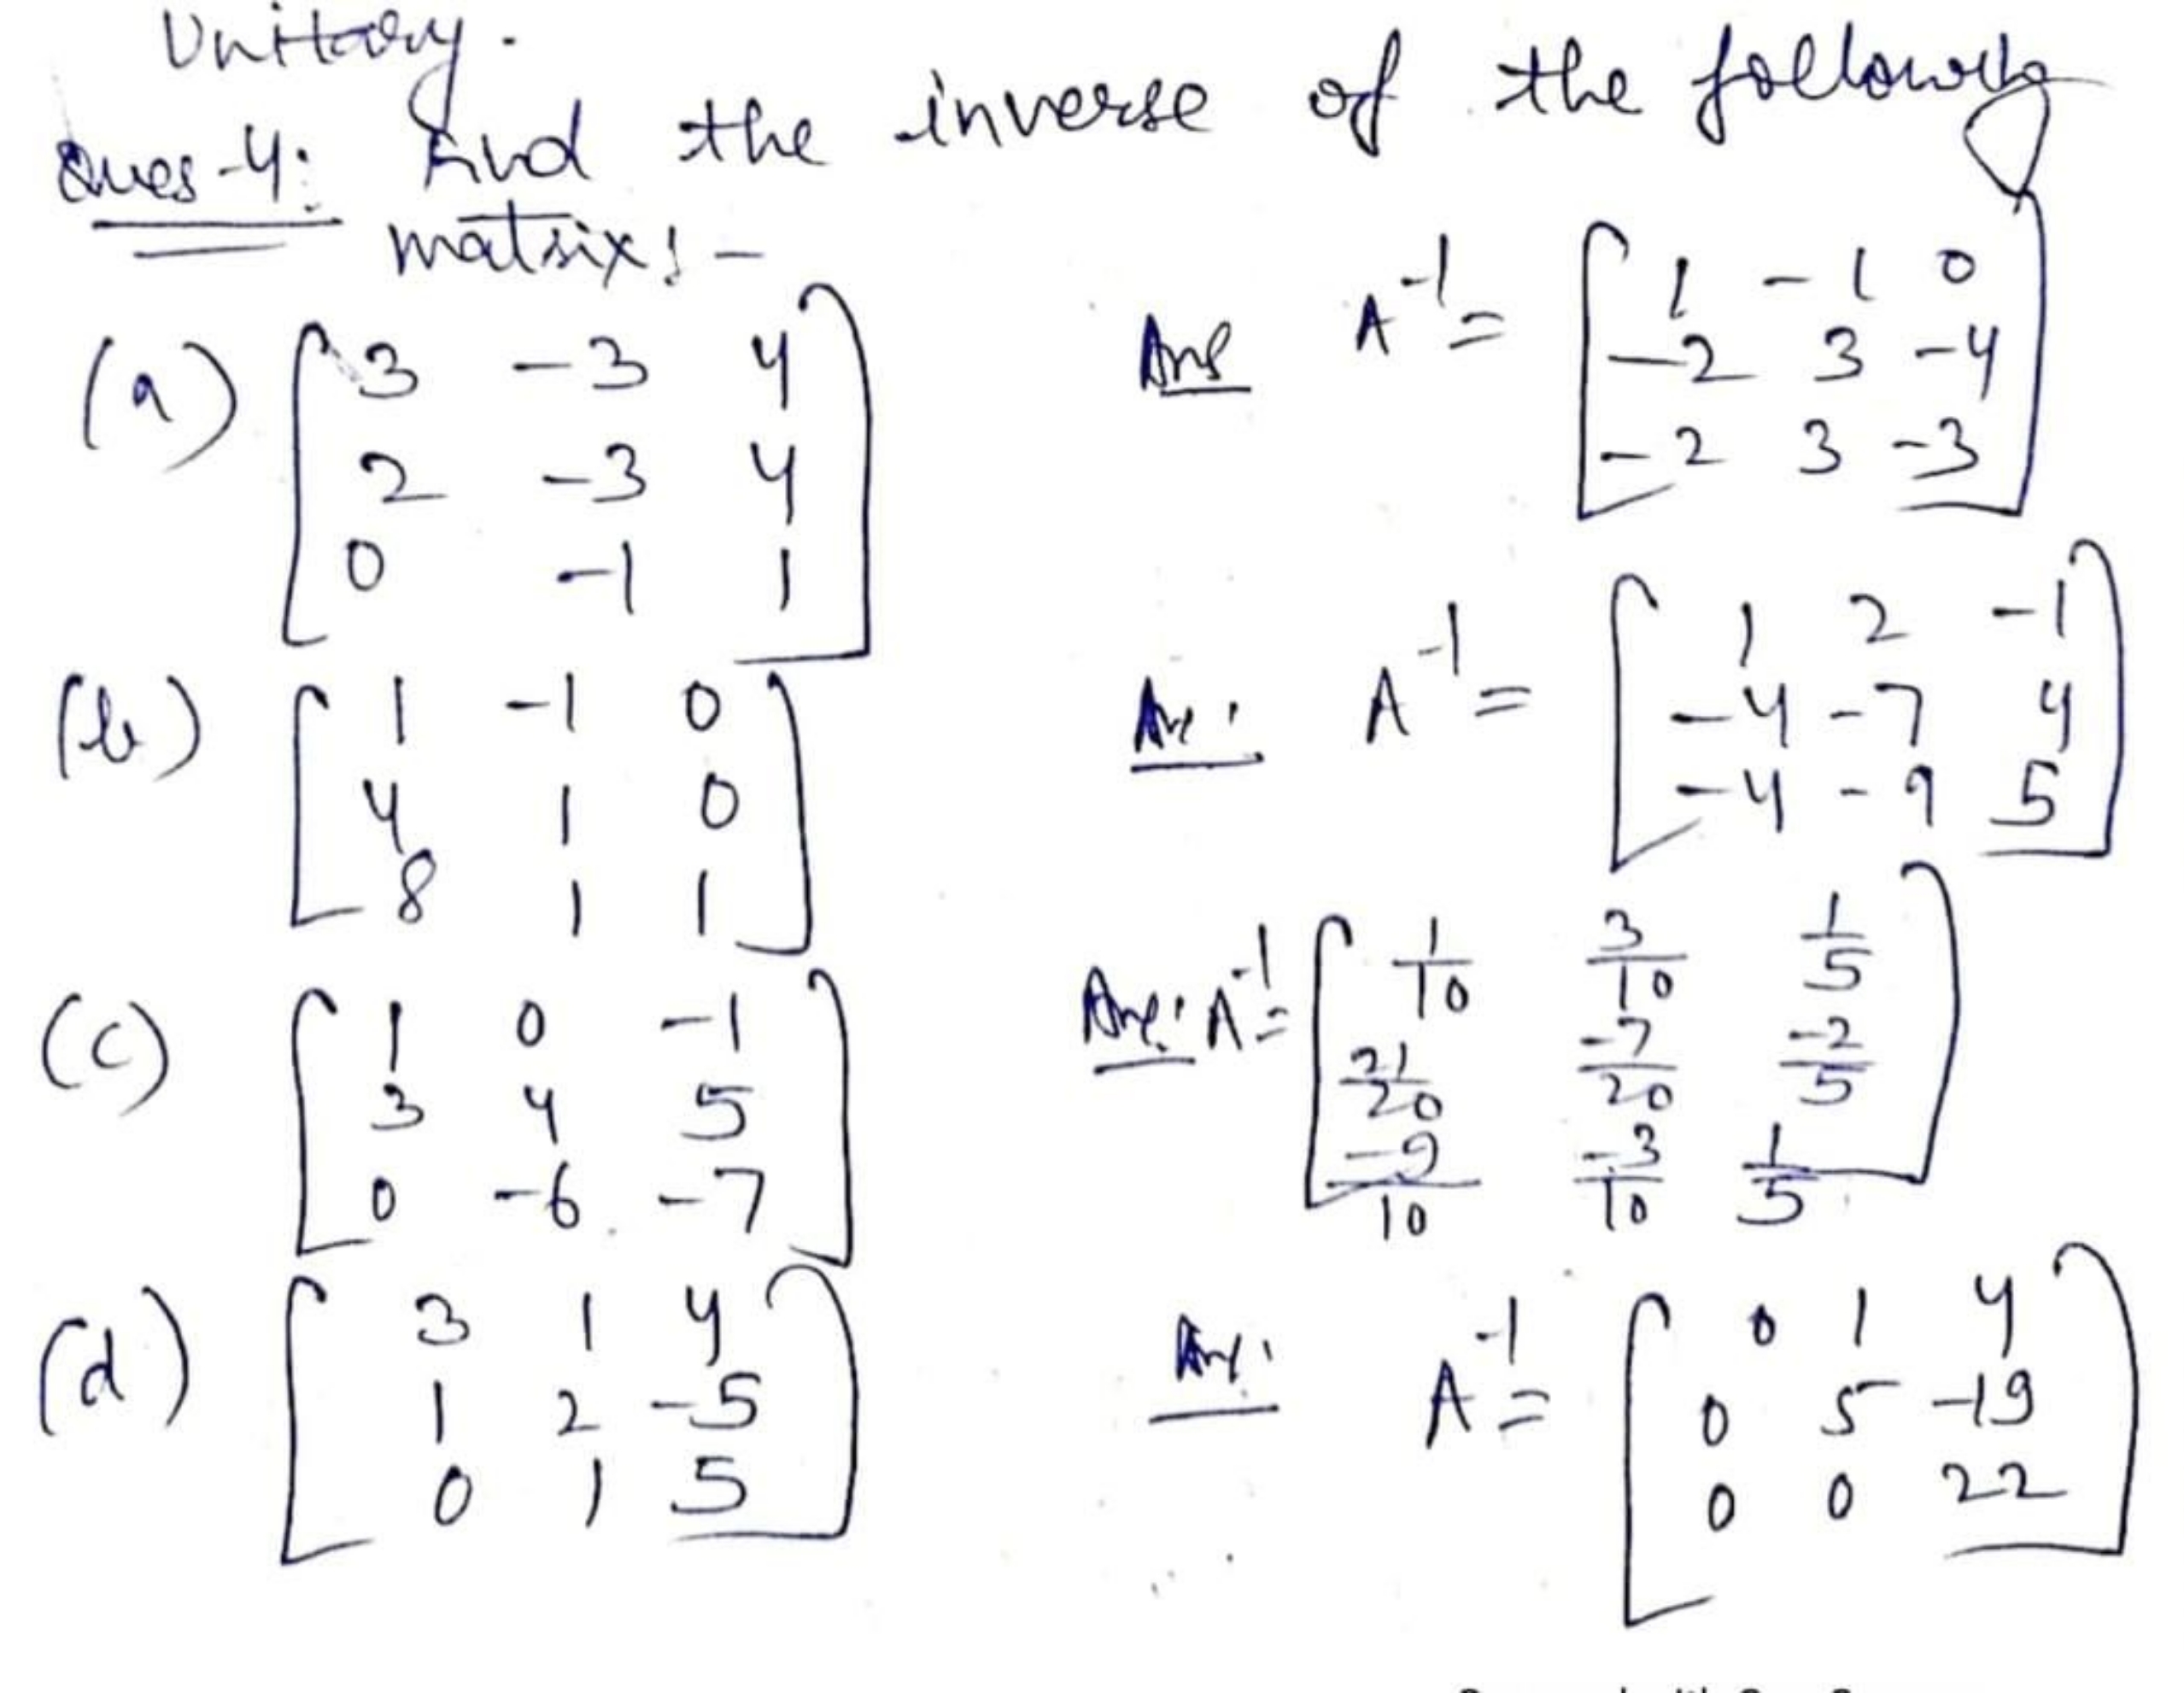 Unitary.
Ques-4: Find the inverse of the following
matrix:-
(a) [ 3 -3 4
2 -3 4
0 -1 1 ]
Ans A^-1 = [ 1 -1 0
-2 3 -4
-2 3 -3 ]
(b) [ 1 -1 0
4 1 0
8 1 1 ]
Ans: A^-1 = [ 1 2 -1
-4 -7 4
-4 -9 5 ]
(c) [ 1 0 -1
3 4 5
0 -6 -7 ]
Ans: A^-1 = [ 1/10 3/10 1/5
21/20 -7/20 -2/5
-9/10 -3/10 1/5 ]
(d) [ 3 1 4
1 2 -5
0 1 5 ]
Ans: A^-1 = [ 0 1 4
0 5 -19
0 0 22 ]